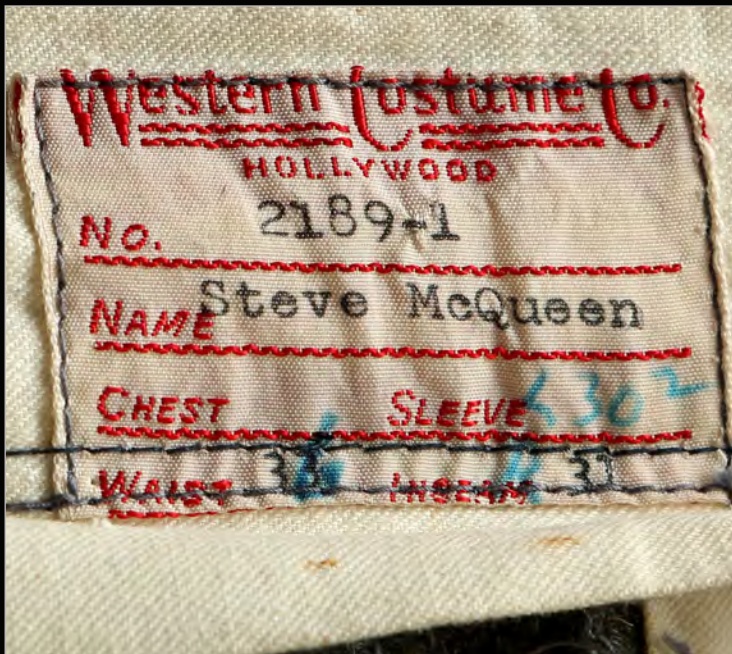 Western Costume Co.
HOLLYWOOD
No. 2189-1
NAME Steve McQueen
CHEST SLEEVE
WAIST INSEAM